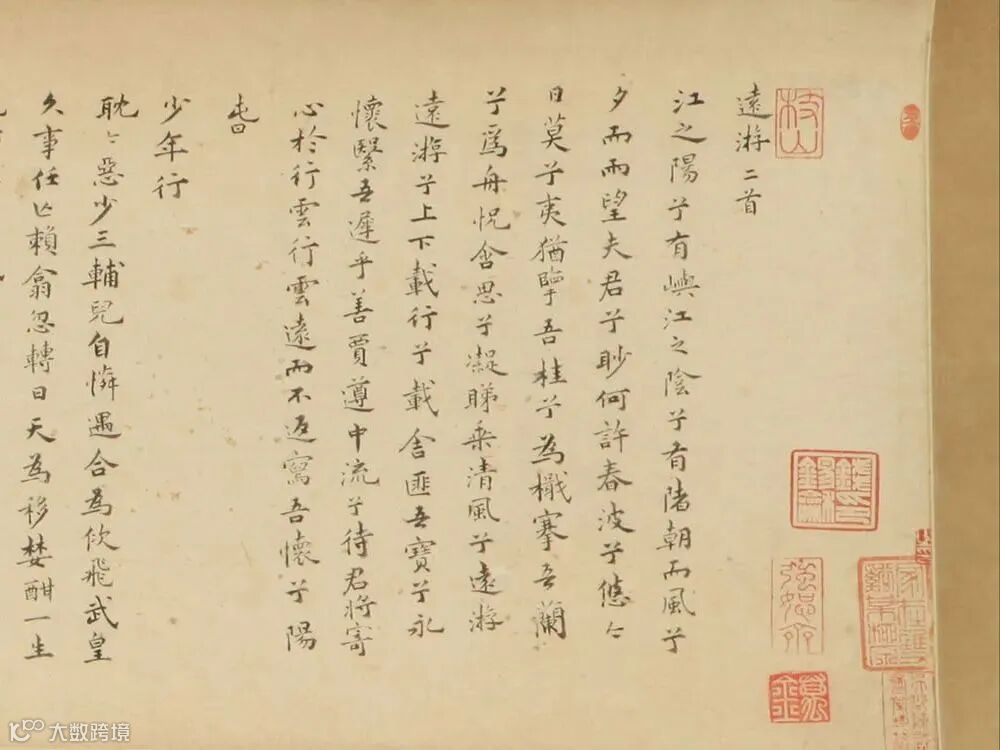 枝山
遠游二首
江之陽兮有嶼江之陰兮有陼朝而風兮
夕而雨望夫君兮眇何許春波兮悠〻
日莫兮夷猶吾桂兮為檝搴吾蘭
兮爲舟怳含思兮凝睇乘清風兮遠游
遠游兮上下載行兮載舍匪吾寶兮永
懷繄吾遲乎善賈遵中流兮待君將寄
心於行雲行雲遠而不返寫吾懷兮陽
旾
少年行
耽〻惡少三輔兒自憐遇合為佽飛武皇
久事任亾賴翕忽轉日天為移婪酣一生
大数跨境